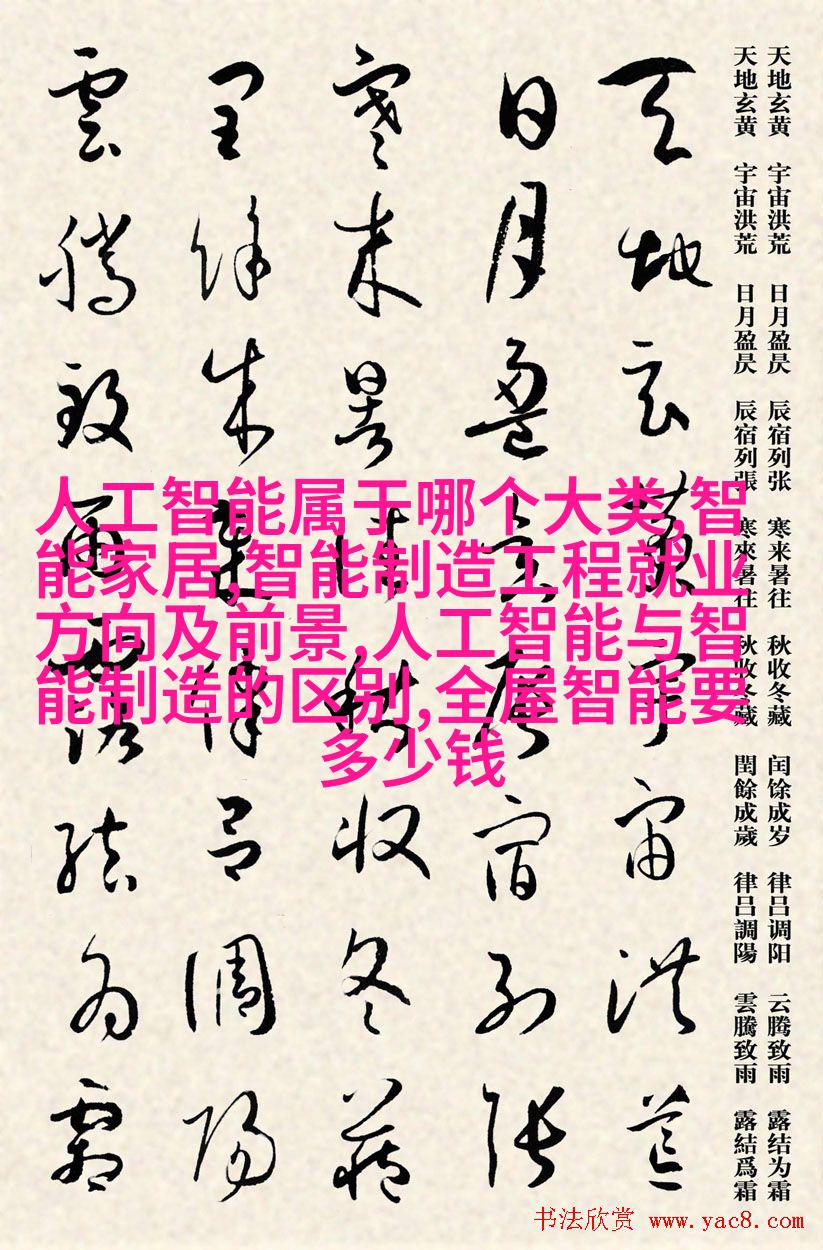 天地玄黄 宇宙洪荒 日月盈昃 辰宿列张 寒来暑往 秋收冬藏 闰馀成岁 律吕调阳 云腾致雨 露结为霜
天地玄黄 宇宙洪荒 日月盈昃 辰宿列張 寒來暑往 秋收冬藏 閏餘成歲 律呂調陽 雲騰致雨 露結爲霜
天地玄黄宇宙洪荒
日月盈昃辰宿列張
寒来暑往秋收冬藏
閏餘成歲律呂調陽
雲騰致雨露結為霜
人工智能属于哪个大类,智
能家居,智能制造工程就业
方向及前景,人工智能与智
能制造的区别,全屋智能要
多少钱
书法欣赏 www.yac8.com